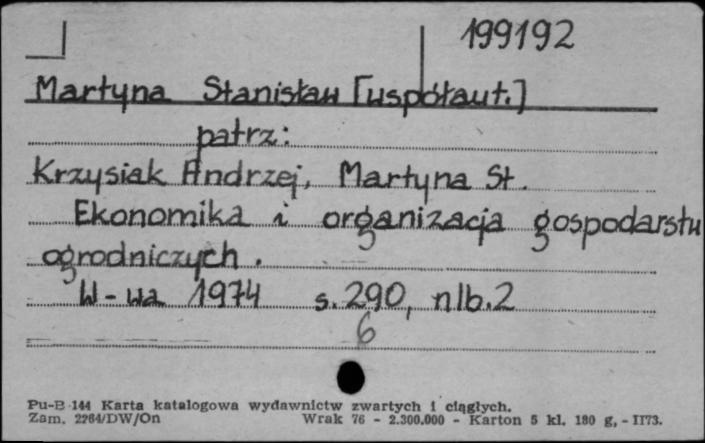 199192
Martyna Stanisław [współaut.]
patrz:
Krzysiak Andrzej, Martyna St.
Ekonomika i organizacja gospodarstw
ogrodniczych.
W-wa 1974 s. 290, nlb. 2
6
Pu-B 144 Karta katalogowa wydawnictw zwartych i ciągłych.
Zam. 2264/DW/On Wrak 76 - 2.300.000 - Karton 5 kl. 180 g, - II73.